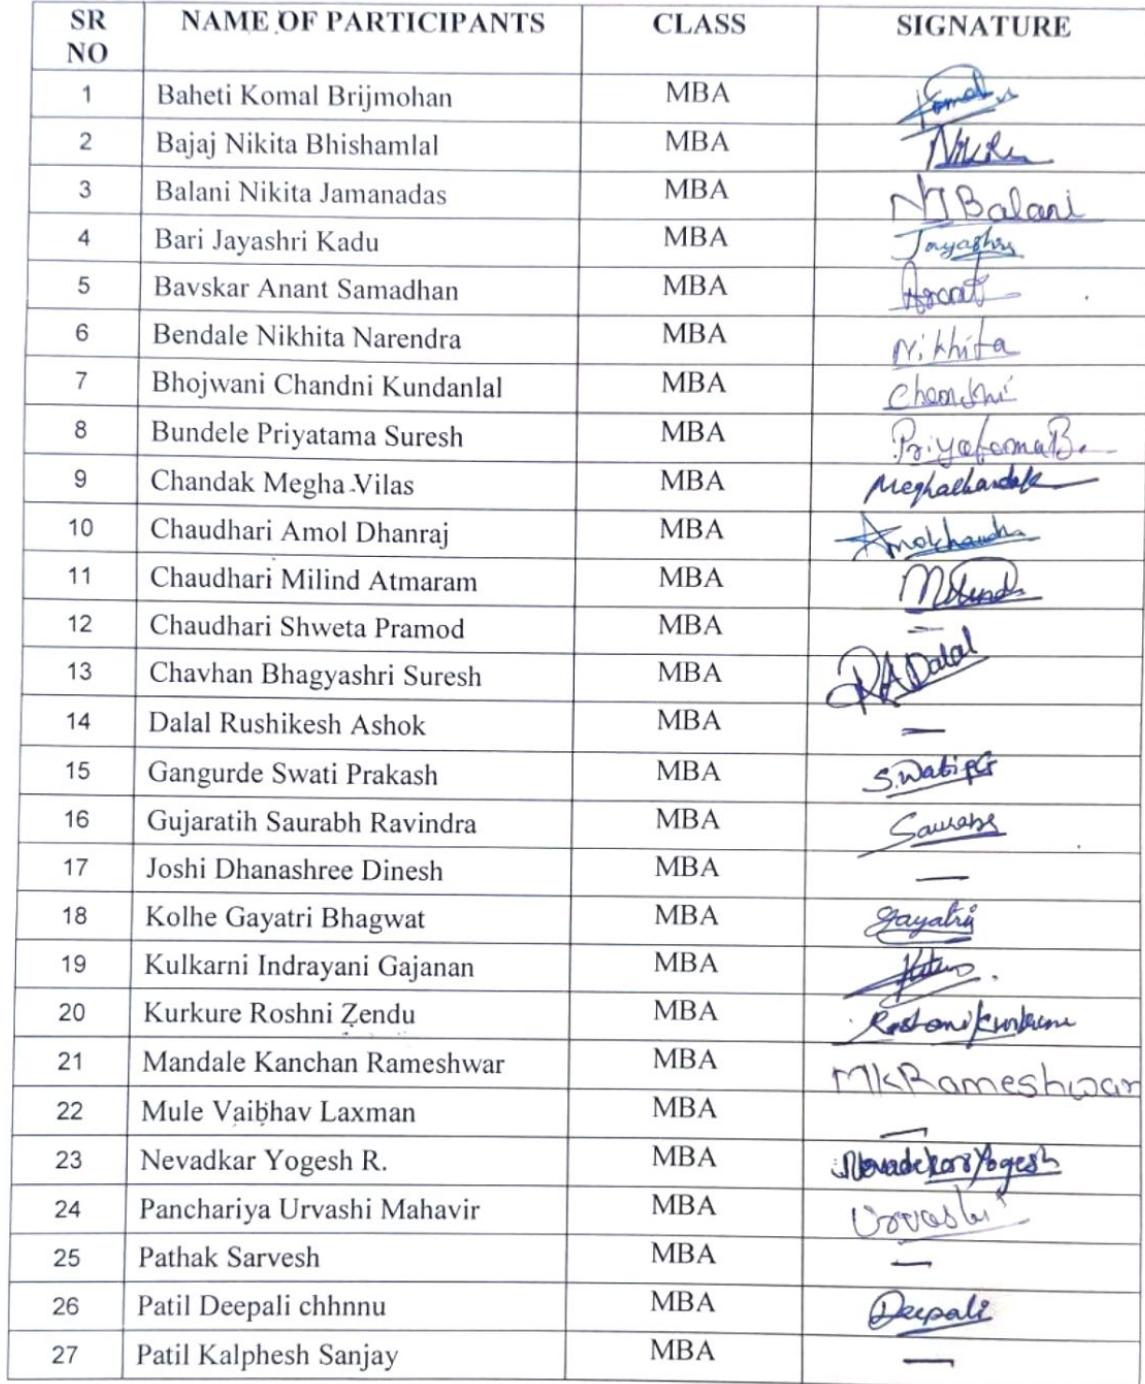 SR NO NAME OF PARTICIPANTS CLASS SIGNATURE
1 Baheti Komal Brijmohan MBA Komal
2 Bajaj Nikita Bhishamlal MBA
3 Balani Nikita Jamanadas MBA NJBalani
4 Bari Jayashri Kadu MBA Jayashri
5 Bavskar Anant Samadhan MBA Anant
6 Bendale Nikhita Narendra MBA Nikhita
7 Bhojwani Chandni Kundanlal MBA Chandni
8 Bundele Priyatama Suresh MBA Priyatama B.
9 Chandak Megha Vilas MBA Meghachandak
10 Chaudhari Amol Dhanraj MBA
11 Chaudhari Milind Atmaram MBA Milind
12 Chaudhari Shweta Pramod MBA —
13 Chavhan Bhagyashri Suresh MBA RADalal
14 Dalal Rushikesh Ashok MBA —
15 Gangurde Swati Prakash MBA SwatiPG
16 Gujaratih Saurabh Ravindra MBA Saurabh
17 Joshi Dhanashree Dinesh MBA —
18 Kolhe Gayatri Bhagwat MBA Gayatri
19 Kulkarni Indrayani Gajanan MBA
20 Kurkure Roshni Zendu MBA
21 Mandale Kanchan Rameshwar MBA MKRameshwar
22 Mule Vaibhav Laxman MBA —
23 Nevadkar Yogesh R. MBA Nevadekar Yogesh
24 Panchariya Urvashi Mahavir MBA Urvashi
25 Pathak Sarvesh MBA —
26 Patil Deepali chhnnu MBA Deepali
27 Patil Kalphesh Sanjay MBA —